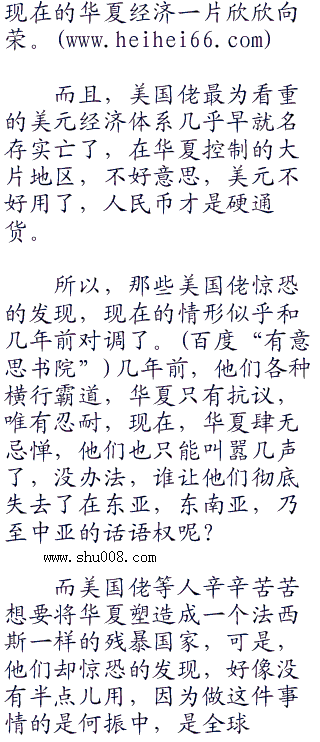 现在的华夏经济一片欣欣向
荣。(www.heihei66.com)
而且，美国佬最为看重
的美元经济体系几乎早就名
存实亡了，在华夏控制的大
片地区，不好意思，美元不
好用了，人民币才是硬通
货。
所以，那些美国佬惊恐
的发现，现在的情形似乎和
几年前对调了。(百度“有意
思书院”)几年前，他们各种
横行霸道，华夏只有抗议，
唯有忍耐，现在，华夏肆无
忌惮，他们也只能叫嚣几声
了，没办法，谁让他们彻底
失去了在东亚，东南亚，乃
至中亚的话语权呢？
www.shu008.com
而美国佬等人辛辛苦苦
想要将华夏塑造成一个法西
斯一样的残暴国家，可是，
他们却惊恐的发现，好像没
有半点儿用，因为做这件事
情的是何振中，是全球